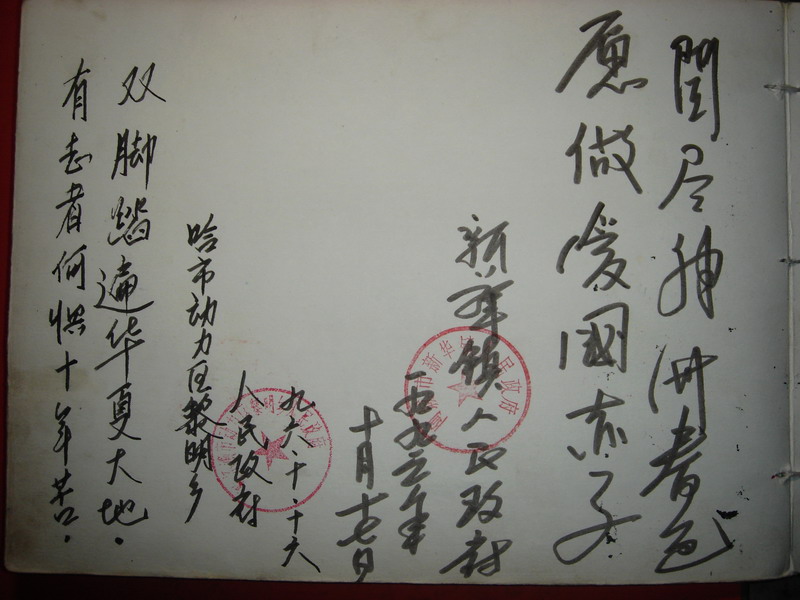 閲尽神州春色
愿做爱國赤子
新华镇人民政府
一九九六年
十月十七日
九六·十·十六
人民政府
哈市动力区黎明乡
双脚踏遍华夏大地·
有志者何惧十年苦·